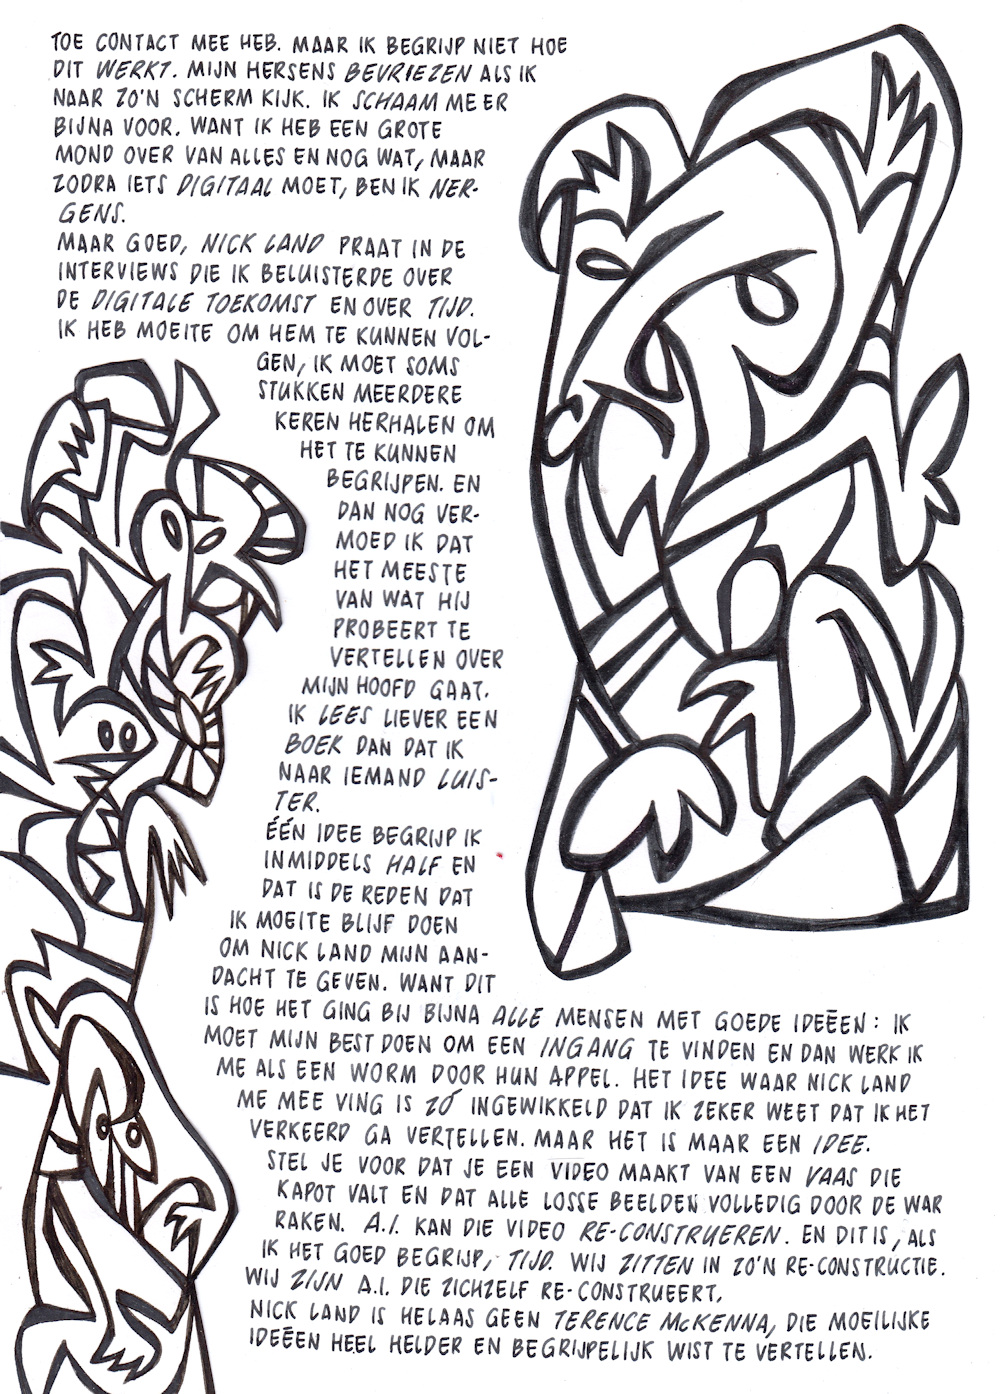 TOE CONTACT MEE HEB. MAAR IK BEGRIJP NIET HOE
DIT WERKT. MIJN HERSENS BEVRIEZEN ALS IK
NAAR ZO'N SCHERM KIJK. IK SCHAAM ME ER
BIJNA VOOR. WANT IK HEB EEN GROTE
MOND OVER VAN ALLES EN NOG WAT, MAAR
ZODRA IETS DIGITAAL MOET, BEN IK NER-
GENS.
MAAR GOED, NICK LAND PRAAT IN DE
INTERVIEWS DIE IK BELUISTERDE OVER
DE DIGITALE TOEKOMST EN OVER TIJD.
IK HEB MOEITE OM HEM TE KUNNEN VOL-
GEN, IK MOET SOMS
STUKKEN MEERDERE
KEREN HERHALEN OM
HET TE KUNNEN
BEGRIJPEN. EN
DAN NOG VER-
MOED IK DAT
HET MEESTE
VAN WAT HIJ
PROBEERT TE
VERTELLEN OVER
MIJN HOOFD GAAT.
IK LEES LIEVER EEN
BOEK DAN DAT IK
NAAR IEMAND LUIS-
TER.
ÉÉN IDEE BEGRIJP IK
INMIDDELS HALF EN
DAT IS DE REDEN DAT
IK MOEITE BLIJF DOEN
OM NICK LAND MIJN AAN-
DACHT TE GEVEN. WANT DIT
IS HOE HET GING BIJ BIJNA ALLE MENSEN MET GOEDE IDEËEN: IK
MOET MIJN BEST DOEN OM EEN INGANG TE VINDEN EN DAN WERK IK
ME ALS EEN WORM DOOR HUN APPEL. HET IDEE WAAR NICK LAND
ME MEE VING IS ZÓ INGEWIKKELD DAT IK ZEKER WEET DAT IK HET
VERKEERD GA VERTELLEN. MAAR HET IS MAAR EEN IDEE.
STEL JE VOOR DAT JE EEN VIDEO MAAKT VAN EEN VAAS DIE
KAPOT VALT EN DAT ALLE LOSSE BEELDEN VOLLEDIG DOOR DE WAR
RAKEN. A.I. KAN DIE VIDEO RE-CONSTRUEREN. EN DIT IS, ALS
IK HET GOED BEGRIJP, TIJD. WIJ ZITTEN IN ZO'N RE-CONSTRUCTIE.
WIJ ZIJN A.I. DIE ZICHZELF RE-CONSTRUEERT.
NICK LAND IS HELAAS GEEN TERENCE McKENNA, DIE MOEILIJKE
IDEËEN HEEL HELDER EN BEGRIJPELIJK WIST TE VERTELLEN.